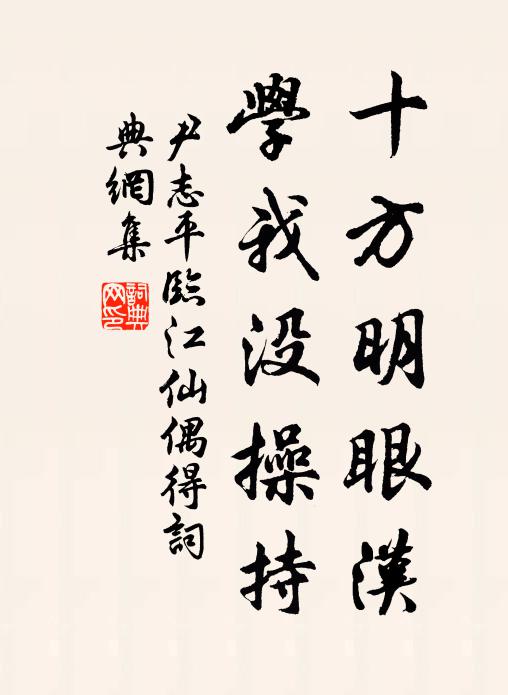 十方明眼漢
學我没操持
尹志平臨江仙偶得詞
典網集
詞典网印